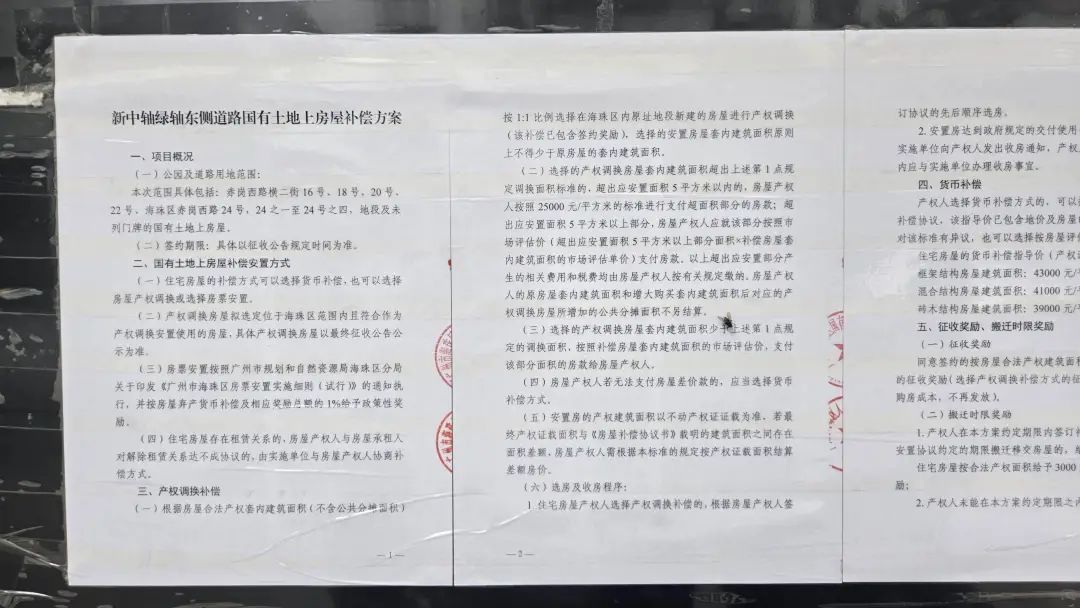 新中轴绿轴东侧道路国有土地上房屋补偿方案
一、项目概况
（一）公园及道路用地范围：
本次范围具体包括：赤岗西路横二街 16 号、18 号、20 号、
22 号、海珠区赤岗西路 24 号、24 之一至 24 号之四、地段及未
列门牌的国有土地上房屋。
（二）签约期限：具体以征收公告规定时间为准。
二、国有土地上房屋补偿安置方式
（一）住宅房屋的补偿方式可以选择货币补偿，也可以选择
房屋产权调换或选择房票安置。
（二）产权调换房屋拟选定位于海珠区范围内且符合作为
产权调换安置使用的房屋，具体产权调换房屋以最终征收公告公
示为准。
（三）房票安置按照广州市规划和自然资源局海珠区分局
关于印发《广州市海珠区房票安置实施细则（试行）》的通知执
行，并按房屋弃产货币补偿及相应奖励总额的 1%给予政策性奖
励。
（四）住宅房屋存在租赁关系的，房屋产权人与房屋承租人
对解除租赁关系达不成协议的，由实施单位与房屋产权人协商补
偿方式。
三、产权调换补偿
（一）根据房屋合法产权套内建筑面积（不含公共分摊面积）
— 1 —
按 1:1 比例选择在海珠区内原址地段新建的房屋进行产权调换
（该补偿已包含签约奖励）。选择的安置房屋套内建筑面积原则
上不得少于原房屋的套内建筑面积。
（二）选择的产权调换房屋套内建筑面积超出上述第 1 点规
定调换面积标准的，超出应安置面积 5 平方米以内的，房屋产权
人按照 25000 元/平方米的标准进行支付超面积部分的房款；超
出应安置面积 5 平方米以上部分，房屋产权人应就该部分按照市
场评估价（超出应安置面积 5 平方米以上部分面积×补偿房屋套
内建筑面积的市场评估单价）支付房款。以上超出应安置部分产
生的相关费用和税费均由房屋产权人按有关规定缴纳。房屋产权
人的原房屋套内建筑面积和增大购买套内建筑面积后对应的产
权调换房屋所增加的公共分摊面积不另结算。
（三）选择的产权调换房屋套内建筑面积少于上述第 1 点规
定的调换面积，按照补偿房屋套内建筑面积的市场评估价，支付
该部分面积的房款给房屋产权人。
（四）房屋产权人若无法支付房屋差价款的，应当选择货币
补偿方式。
（五）安置房的产权建筑面积以不动产权证证载为准。若最
终产权证载面积与《房屋补偿协议书》载明的建筑面积之间存在
面积差额，房屋产权人需根据本标准的规定按产权证载面积结算
差额房价。
（六）选房及收房程序：
1.住宅房屋产权人选择产权调换补偿的，根据房屋产权人签
— 2 —
订协议的先后顺序选房。
2.安置房达到政府规定的交付使用
实施单位向产权人发出收房通知，产权
内应与实施单位办理收房事宜。
四、货币补偿
产权人选择货币补偿方式的，可以
补偿协议，该指导价已包含地价及房屋
对该标准有异议，也可以选择按房屋评
住宅房屋的货币补偿指导价（产权
框架结构房屋建筑面积：43000 元/
混合结构房屋建筑面积：41000 元/
砖木结构房屋建筑面积：39000 元/
五、征收奖励、搬迁时限奖励
（一）征收奖励
同意签约的按房屋合法产权建筑面积
的征收奖励（选择产权调换补偿方式的征
购房成本，不再发放）。
（二）搬迁时限奖励
1.产权人在本方案约定期限内签订补
安置协议约定的期限搬迁移交房屋的，给
住宅房屋按合法产权面积给予 3000
励；
2.产权人未能在本方案约定期限之内